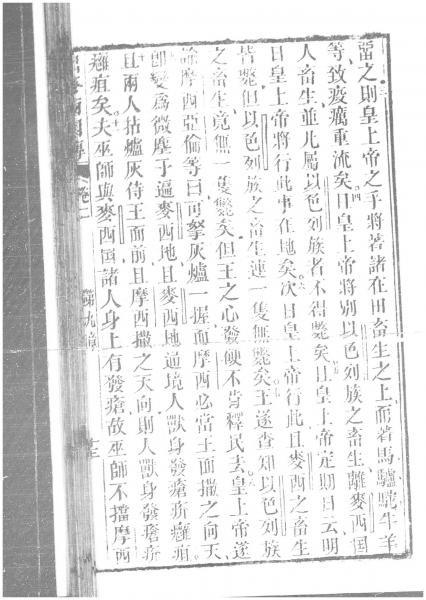 畱之則皇上帝之手將著諸在田畜生之上而著馬驢駝牛羊
等致疫癘重流矣四且皇上帝將別以色列族之畜生離麥西国
人畜生並凡屬以色列族者不得斃矣五且皇上帝定期日云明
日皇上帝將行此事在地矣六次日皇上帝行此且麥西之畜生
皆斃但以色列族之畜生連一隻無斃矣七王遂查知以色列族
之畜生竟無一隻斃矣但王之心發硬不肯釋民去八皇上帝遂
諭摩西亞倫等曰可拏灰爐一握而摩西必當王面撒之向天九
卽變爲微塵于逼麥西地且麥西地通境人獸身發瘡疥癰疽十
且兩人拈爐灰侍王面前且摩西撒之天向則人獸身發瘡疥
癰疽矣十一夫巫師與麥西国諸人身上有發瘡故巫師不擋摩西
卷二
第九章
十三